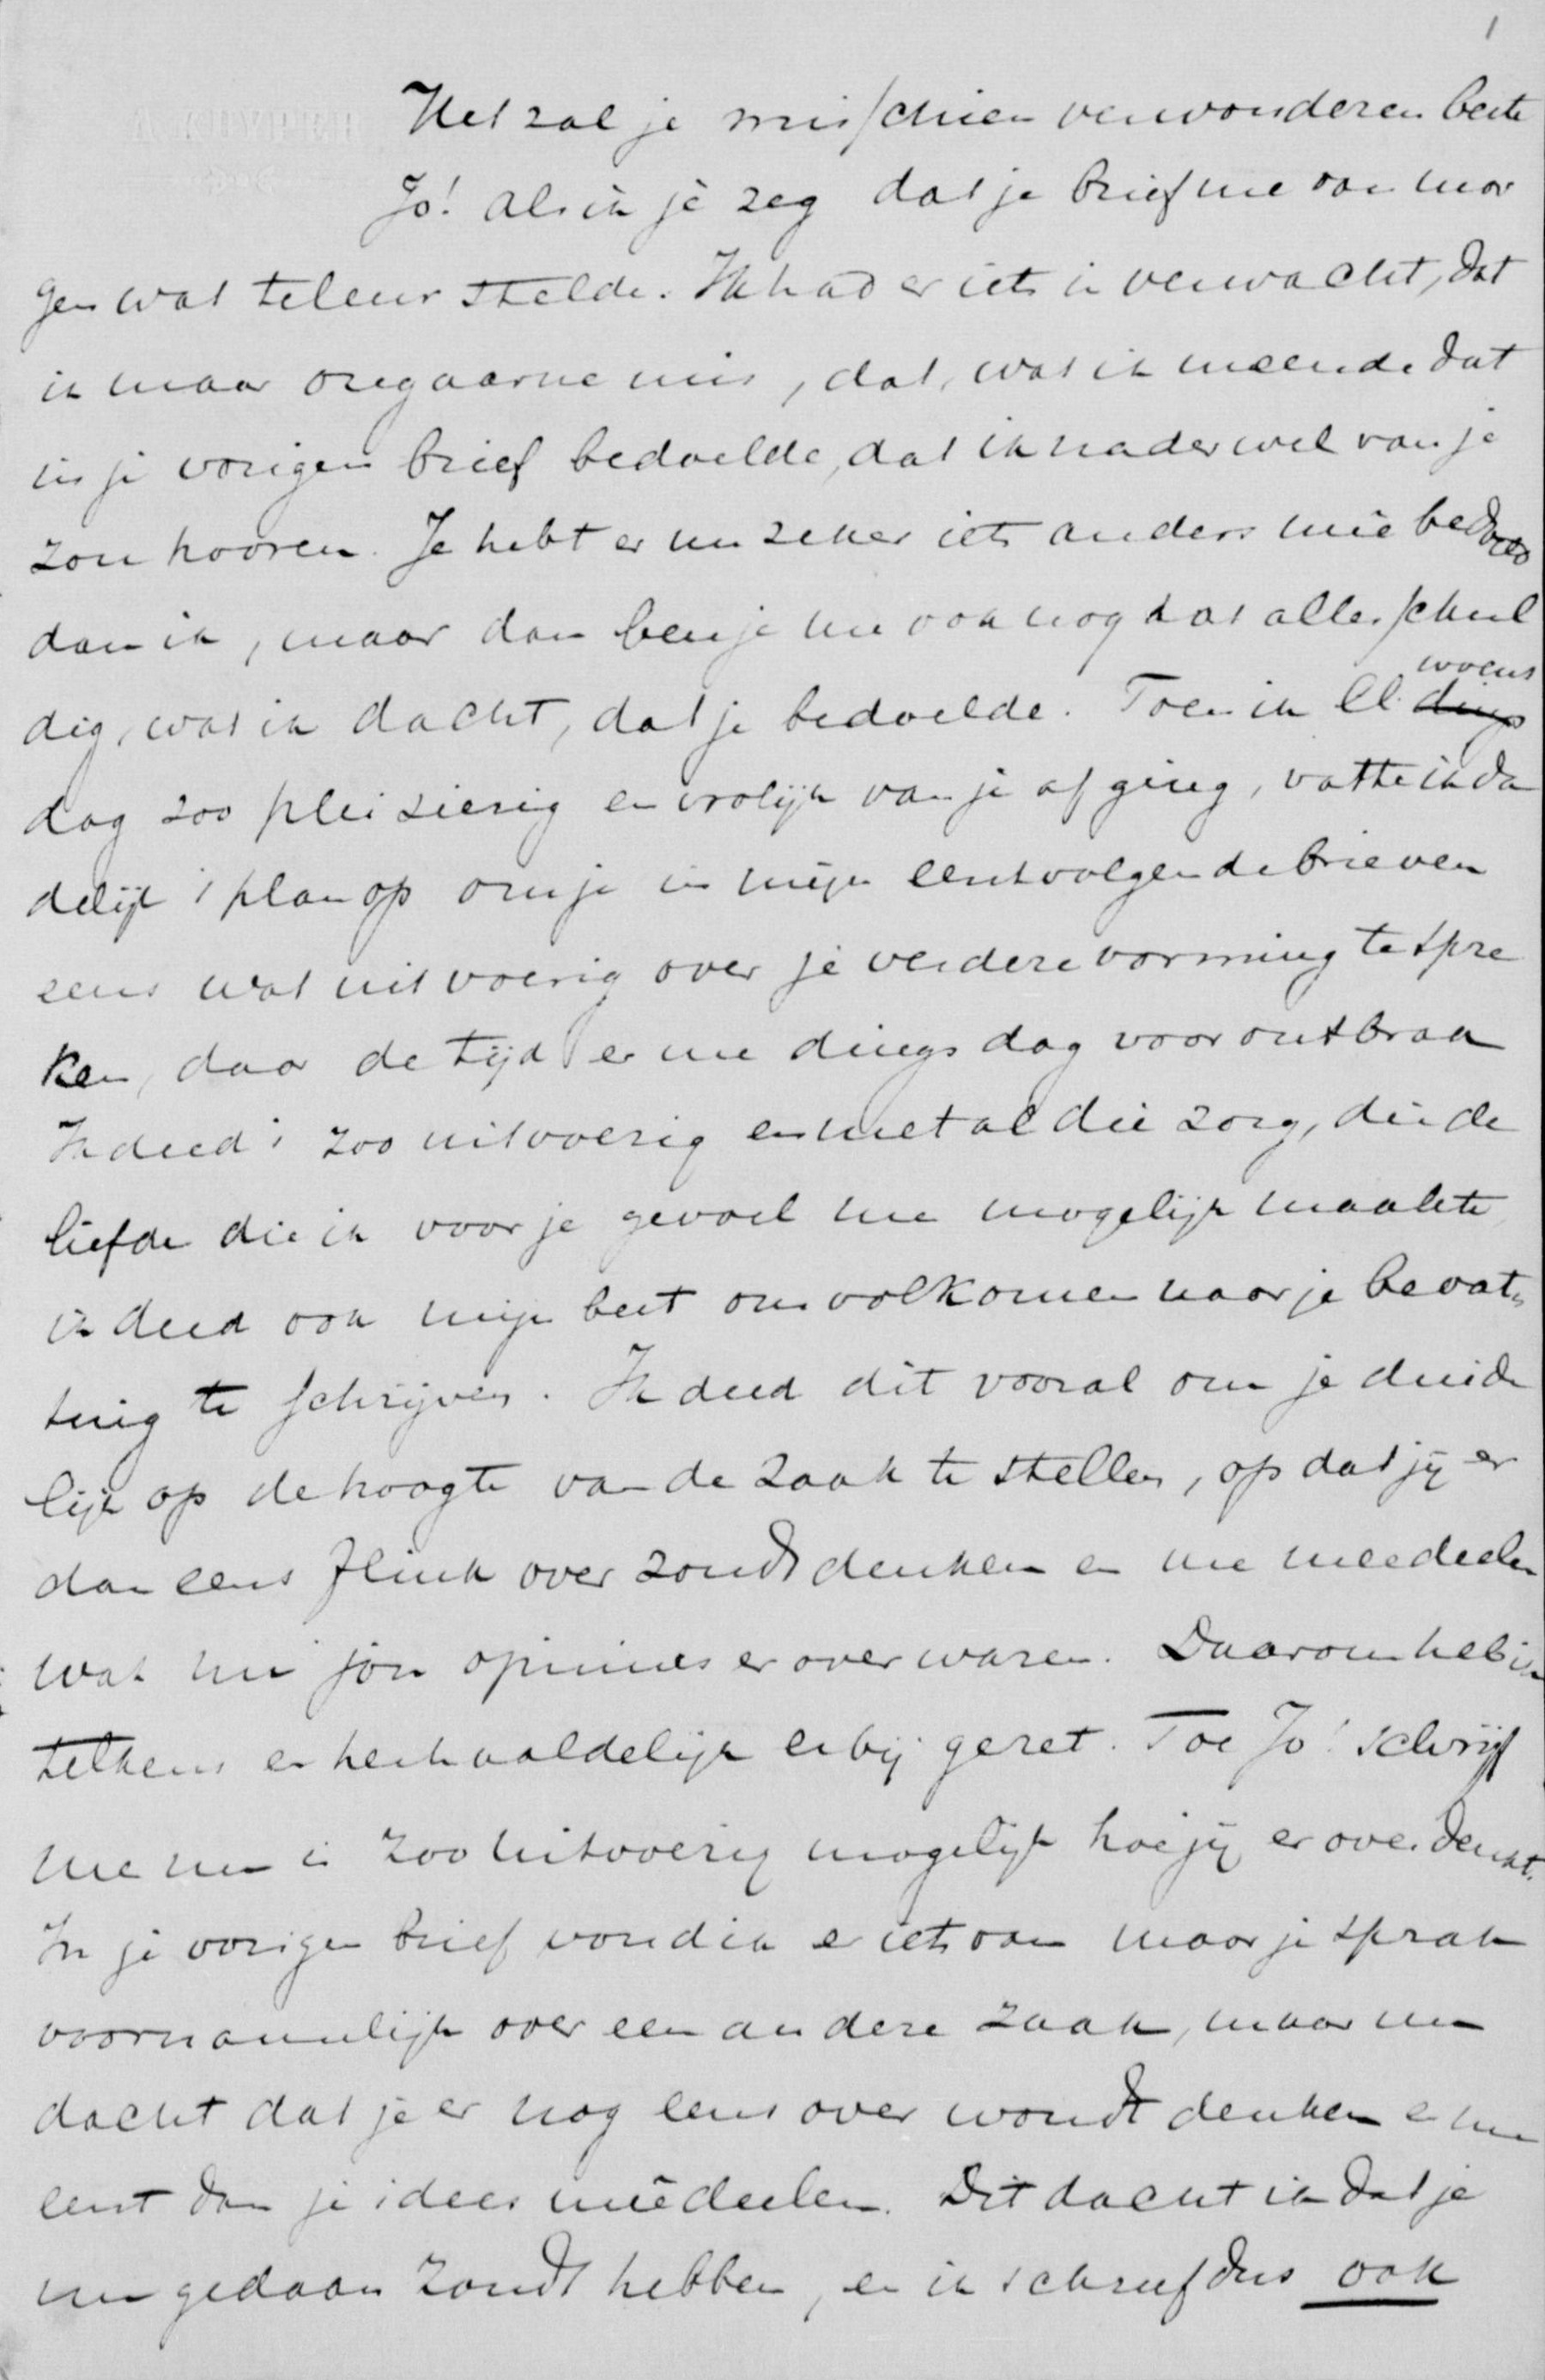 1
Het zal je misschien verwonderen beste
Jo! als ik je zeg dat je brief me van mor
gen wat teleur stelde. Ik had er iets in verwacht, dat
ik maar ongaarne mis, dat, wat ik meende dat
in je vorigen brief bedoelde, dat ik nader wel van je
zou hooren. Je hebt er nu zeker iets anders meê bedoeld
dan ik, maar dan ben je me ook nog dat alles schul
dig, wat ik dacht, dat je bedoelde. Toen ik ll. dings woens
dag zoo pleizierig en vrolijk van je af ging, vatte ik da
delijk 't plan op om je in mijn eerstvolgende brieven
eens wat uitvoerig over je verdere vorming te spre
ken, daar de tijd er me dingsdag voor ontbrak
Ik deed 't zoo uitvoerig en met al die zorg, die de
liefde die ik voor je gevoel me mogelijk maakte,
ik deed ook mijn best om volkomen naar je bevat
ting te schrijven. Ik deed dit vooral om je duide
lijk op de hoogte van de zaak te stellen, op dat jij er
dan eens flink over zoudt denken en me meedeelen
wat nu jou opinies er over waren. Daarom heb ik
telkens en herhaaldelijk er bij gezet. Toe Jo! schrijf
me nu 's zoo uitvoerig mogelijk hoe jij er over denkt.
In je vorigen brief vond ik er iets van maar je sprak
voornamelijk over een andere zaak, maar nu
dacht dat je er nog eens over woudt denken en me
eerst dan je idees meêdeelen. Dit dacht ik dat je
nu gedaan zoudt hebben, en ik schreef dus ook